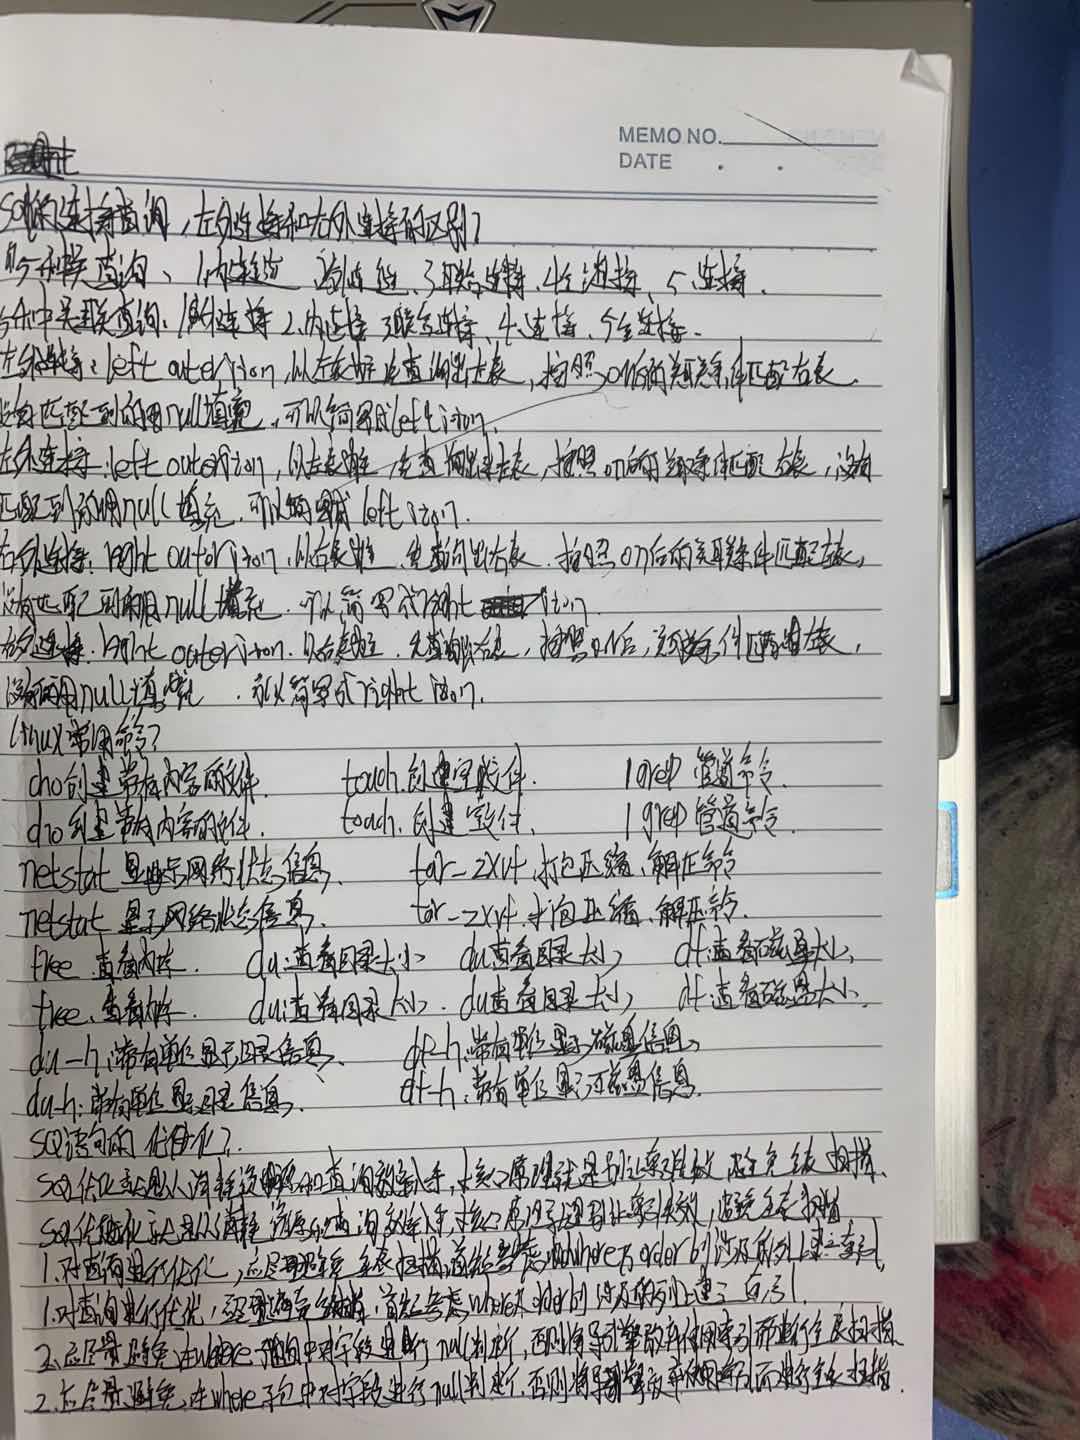 MEMO NO.
DATE
sql的连接查询,左外连接和右外连接的区别?
5种关联查询、1内连接 3联合连接、4全连接、5连接.
5种关联查询:1外连接 2.内连接 3联合连接、4.连接、5全连接.
左外连接:left outer ison,以左表 先查询出左表,按照on后的关联条件匹配右表.
没有匹配到的用null填充,可以简写成left ison.
左外连接:left outer ison,以左表 先查询出左表,按照on后的关联条件匹配右表,没有
匹配到的用null填充.可以简写成left ison.
右外连接:right outer ison,以右表 先查询出右表.按照on后的关联条件匹配左表,
没有匹配到的用null填充.可以简写成right ison.
右外连接:right outer ison.以右表 先查询出右表,按照on后,关联条件匹配左表,
没有的用null填充.可以简写成right ison.
linux常用命令?
cho创建带有内容的文件. touch.创建空文件. | grep 管道命令
cho创建带有内容的文件. touch.创建空文件. | grep 管道命令.
netstat 显示网络状态信息. tar-zxvf.打包压缩、解压命令
netstat 显示网络状态信息. tar-zxvf.打包压缩、解压命令.
free 查看内存. du:查看目录大小 du查看目录大小 df:查看磁盘大小.
free.查看内存. du:查看目录大小. du查看目录大小 df:查看磁盘大小.
du-h:带有单位显示目录信息. df-h:带有单位显示磁盘信息.
du-h:带有单位显示目录信息. df-h:带有单位显示磁盘信息.
SQL语句的优化?
SQL优化主要是从消耗资源和查询效率入手,核心原理就是别让索引失效,避免全表扫描.
SQL优化主要是从消耗资源和查询效率入手,核心原理就是别让索引失效,避免全表扫描
1.对查询进行优化,应尽量避免全表扫描,首先考虑在where及order by涉及的列上建立索引.
1.对查询进行优化,应尽量避免全表扫描,首先考虑where及order by涉及的列上建立索引.
2.应尽量避免在where子句中对字段进行null判断,否则将导致引擎放弃使用索引而进行全表扫描.
2.应尽量避免在where子句中对字段进行null判断,否则将导致引擎放弃使用索引而进行全表扫描.